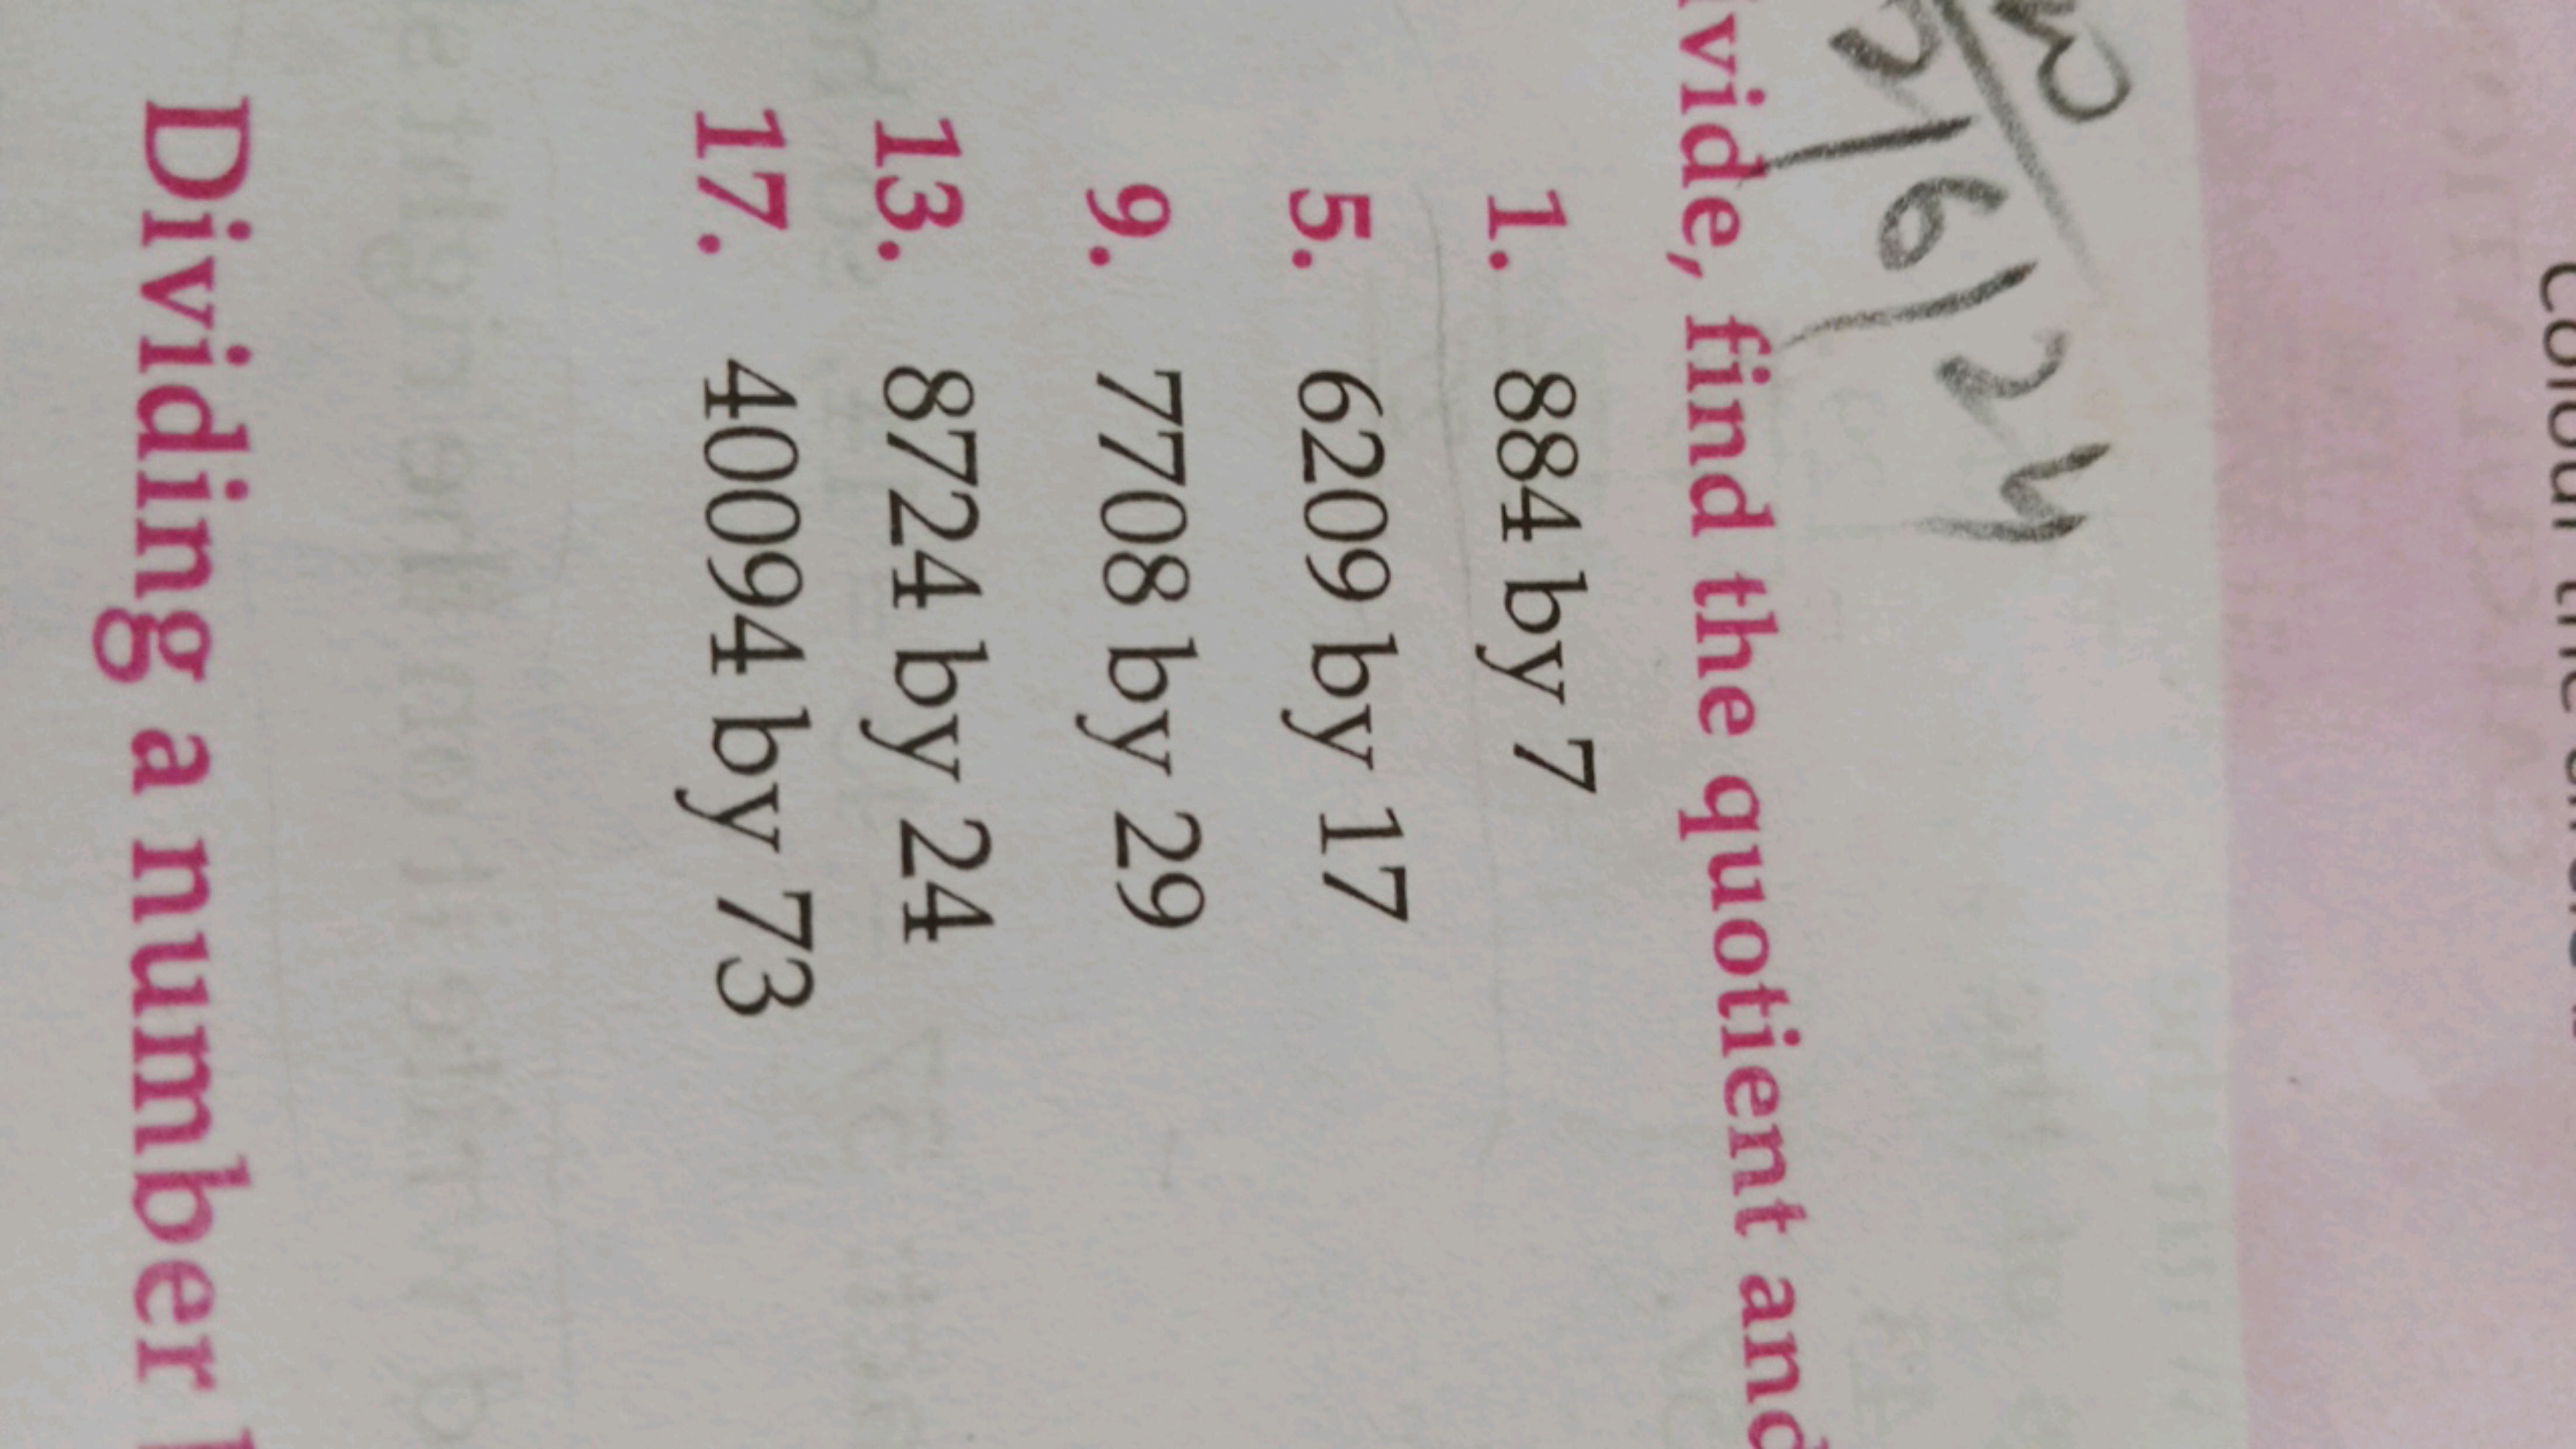 Colour the
2/6/24
vide, find the quotient and
1. 884 by 7
5. 6209 by 17
9. 7708 by 29
13. 8724 by 24
17. 40094 by 73
Dividing a number